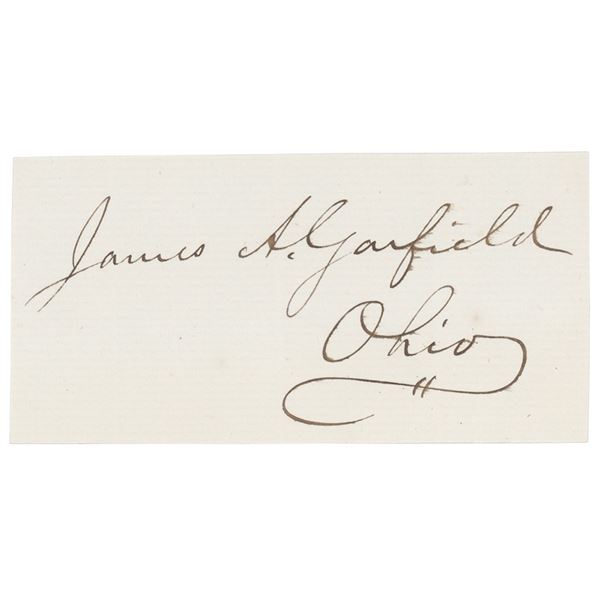 James A. Garfield
Ohio